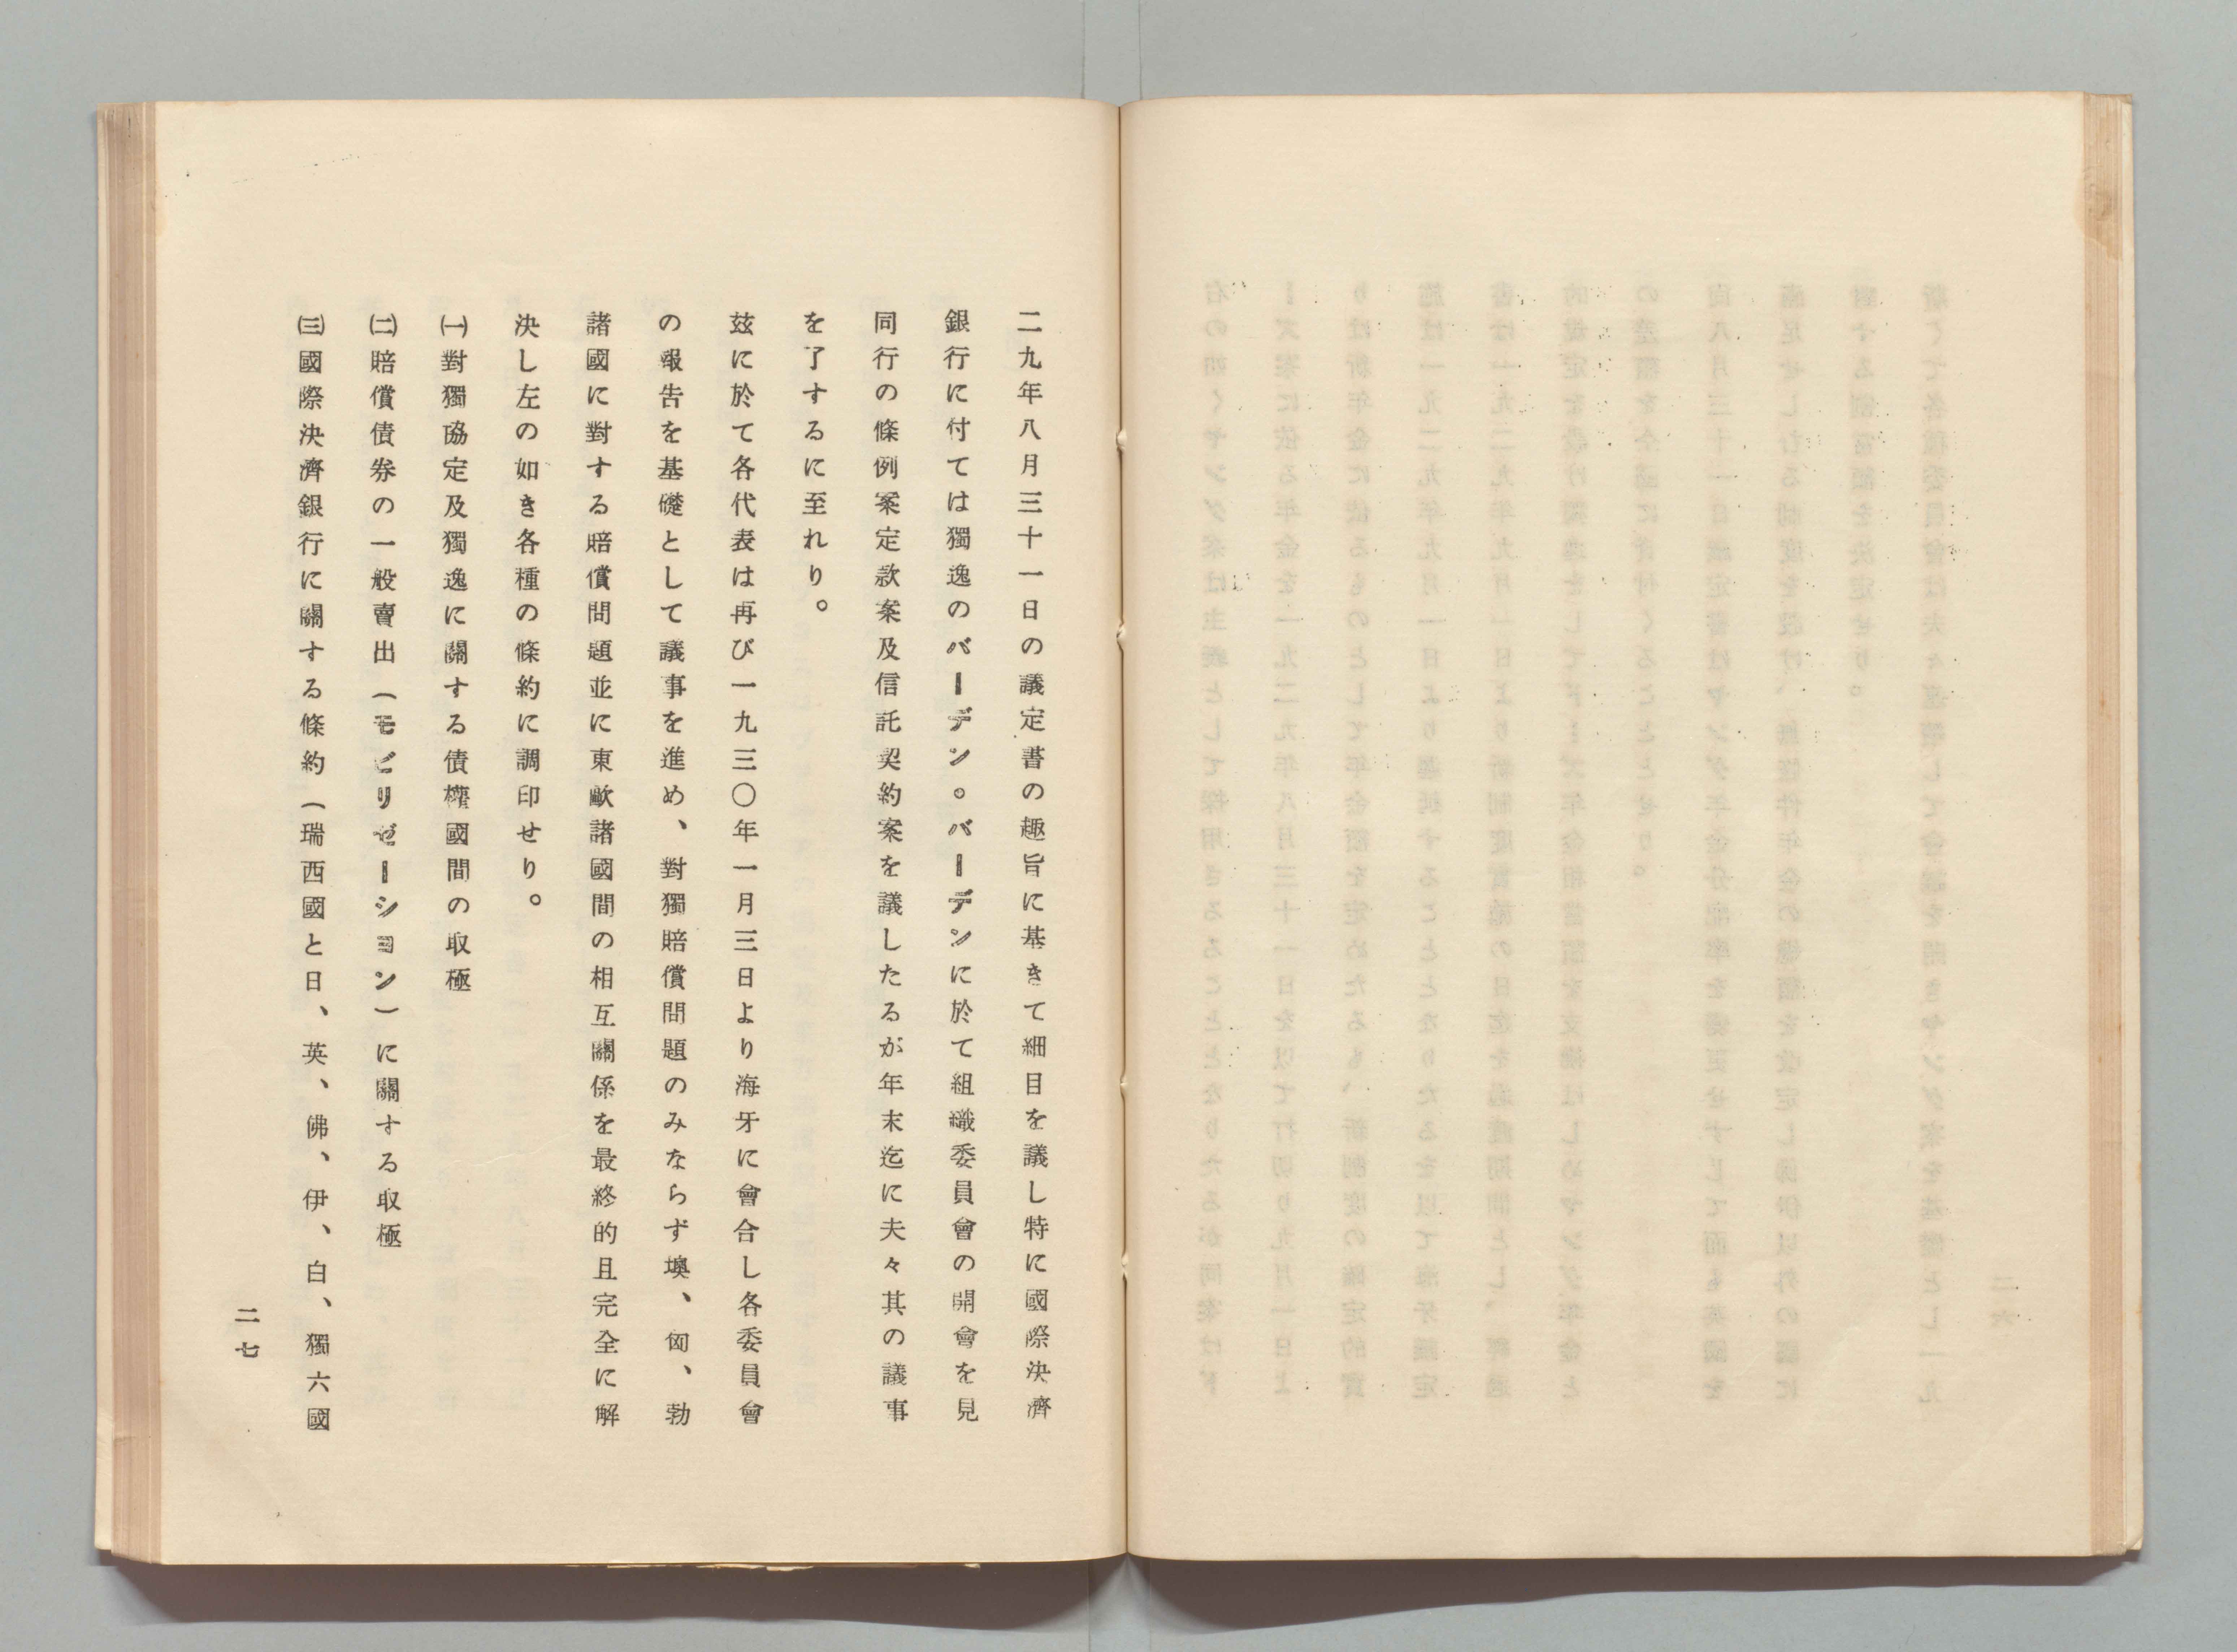 二九年八月三十一日の議定書の趣旨に基きて細目を議し特に國際決濟
銀行に付ては獨逸のバーデン。バーデンに於て組織委員會の開會を見
同行の條例案定款案及信託契約案を議したるが年末迄に夫々其の議事
を了するに至れり。
茲に於て各代表は再び一九三〇年一月三日より海牙に會合し各委員會
の報告を基礎として議事を進め、對獨賠償問題のみならず墺、匈、勃
諸國に對する賠償問題並に東歐諸國間の相互關係を最終的且完全に解
決し左の如き各種の條約に調印せり。
㈠對獨協定及獨逸に關する債權國間の取極
㈡賠償債券の一般賣出(モビリゼーシヨン)に關する取極
㈢國際決濟銀行に關する條約(瑞西國と日、英、佛、伊、白、獨六國
二七